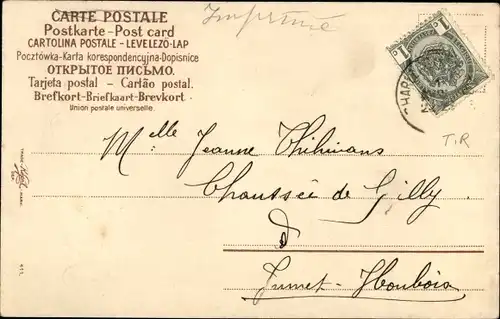 CARTE POSTALE
Imprimé
Postkarte-Post card
CARTOLINA POSTALE - LEVELEZÖ-LAP
Pocztówka-Karta korespondencyjna-Dopisnice
ОТКРЫТОЕ ПИСЬМО.
Tarjeta postal - Cartão postal.
Brefkort-Briefkaart-Brevkort.
Union postale universelle.
1 1
CHARL
T.R
Melle Jeanne
Chaussée de Gilly
à
Jumet-Houbois